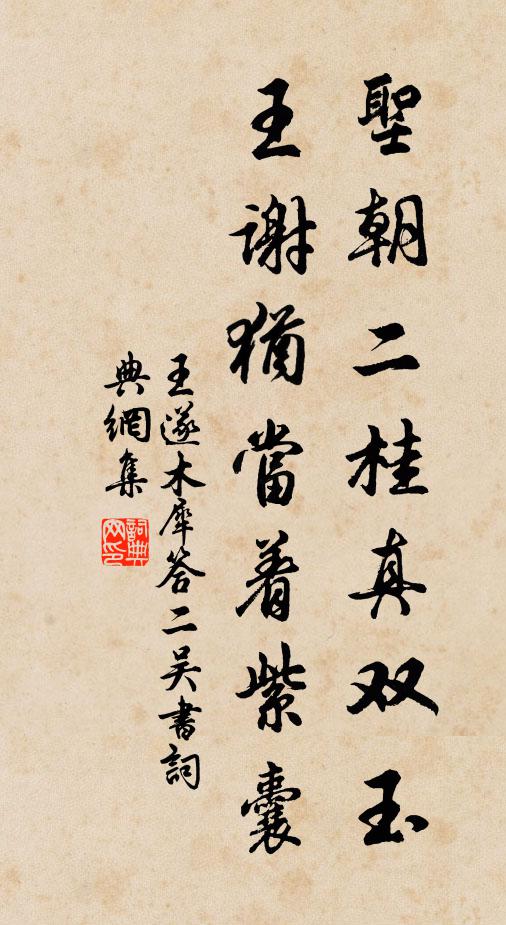 聖朝二桂真双玉
王謝猶當着紫囊
王遂木犀答二吴書詞
典網集
詞典網印